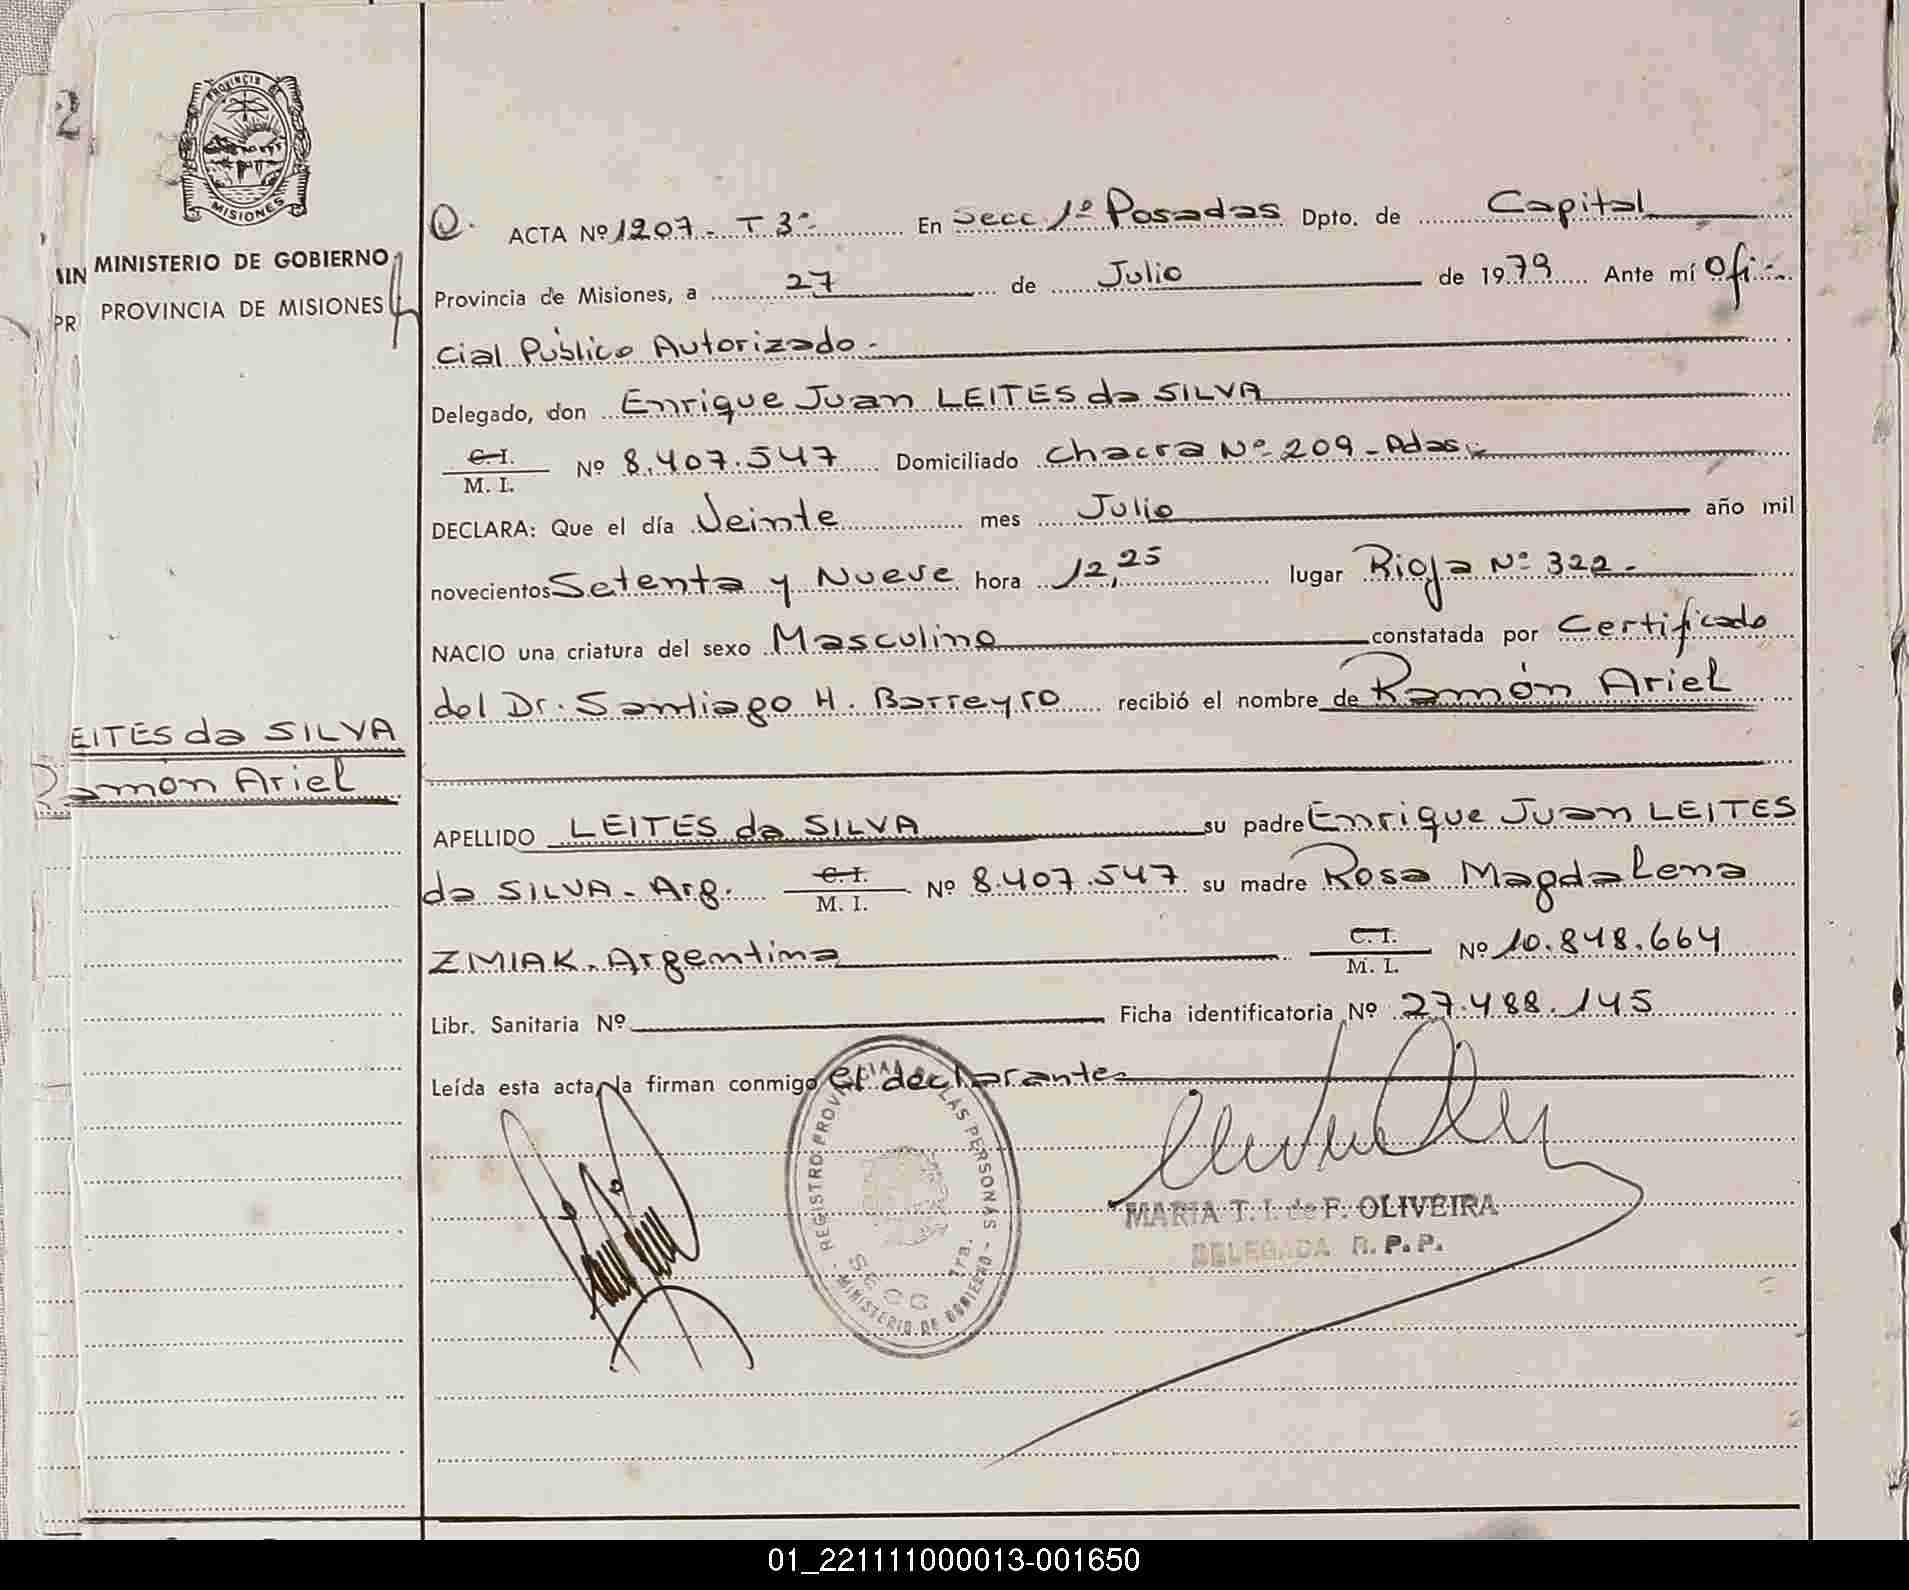 2
PROVINCIA DE
MISIONES
MINISTERIO DE GOBIERNO
PROVINCIA DE MISIONES
MIN
PR
ACTA Nº 1207 - T 3º - En Secc. 1º Posadas Dpto. de Capital
Provincia de Misiones, a 27 de Julio de 1979 Ante mí Ofi-
cial Público Autorizado -
Delegado, don Enrique Juan LEITES da SILVA
C. I.
M. I. Nº 8.407.547 Domiciliado Chacra Nº 209 - Pdas.
DECLARA: Que el día Veinte mes Julio año mil
novecientos Setenta y Nueve hora 12,25 lugar Rioja Nº 322 -
NACIO una criatura del sexo Masculino constatada por Certificado
del Dr. Santiago H. Barreyro recibió el nombre de Ramón Ariel
EITES da SILVA
Ramón Ariel
APELLIDO LEITES da SILVA su padre Enrique Juan LEITES
da SILVA - Arg. C. I.
M. I. Nº 8.407.547 su madre Rosa Magdalena
ZMIAK - Argentina C. I.
M. I. Nº 10.848.664
Libr. Sanitaria Nº Ficha identificatoria Nº 27.488.145
Leída esta acta, la firman conmigo el declarante
REGISTRO PROVINCIAL DE LAS PERSONAS
SECC 1ra.
MINISTERIO DE GOBIERNO
MARIA T. I. de F. OLIVEIRA
DELEGADA R. P. P.
01_221111000013-001650